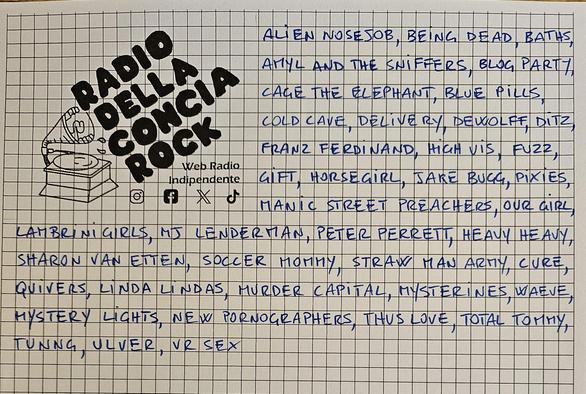 RADIO
DELLA
CONCIA
ROCK
Web Radio
Indipendente
ALIEN NOSEJOB, BEING DEAD, BATHS,
AMYL AND THE SNIFFERS, BLOG PARTY,
CAGE THE ELEPHANT, BLUE PILLS,
COLD CAVE, DELIVERY, DEWOLFF, DITZ,
FRANZ FERDINAND, HIGH VIS, FUZZ,
GIFT, HORSEGIRL, JAKE BUGG, PIXIES,
MANIC STREET PREACHERS, OUR GIRL,
LAMBRINI GIRLS, MJ LENDERMAN, PETER PERRETT, HEAVY HEAVY,
SHARON VAN ETTEN, SOCCER MOMMY, STRAW MAN ARMY, CURE,
QUIVERS, LINDA LINDAS, MURDER CAPITAL, MYSTERINES, WAEVE,
MYSTERY LIGHTS, NEW PORNOGRAPHERS, THUS LOVE, TOTAL TOMMY,
TUNNG, ULVER, VR SEX